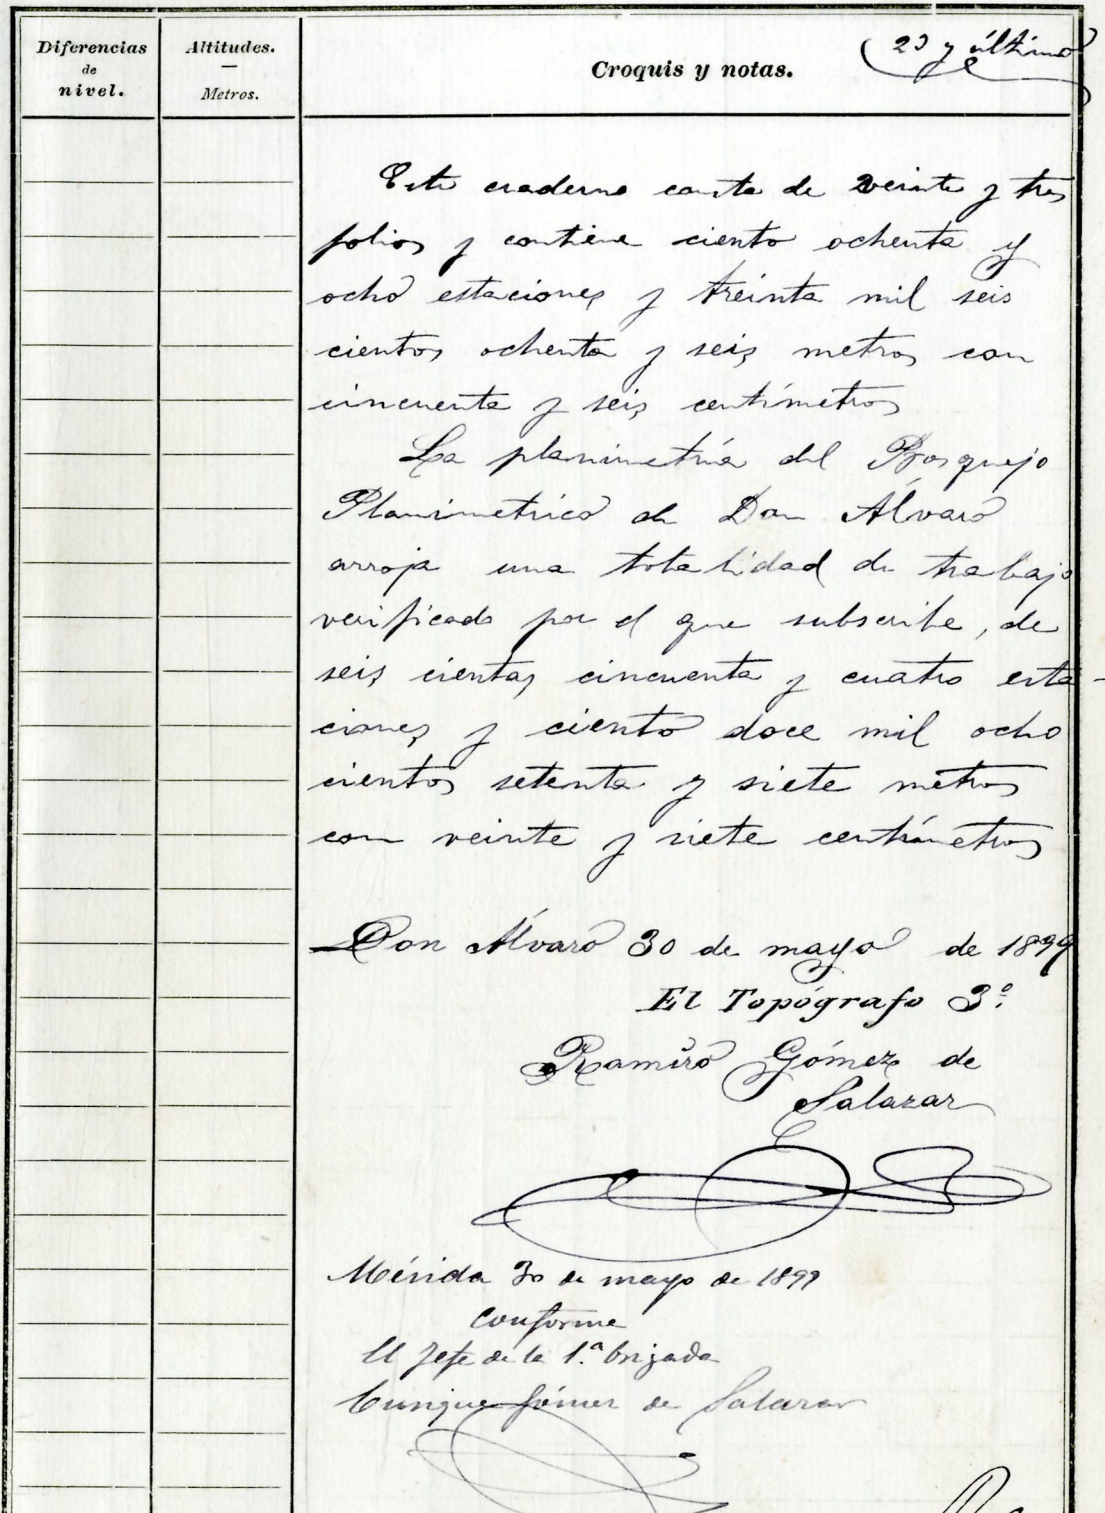 Diferencias
de
nivel.
Altitudes.
Metros.
Croquis y notas.
(23 y último)
Este cuaderno consta de veinte y tres
folios y contiene ciento ochenta y
ocho estaciones y treinta mil seis
cientos ochenta y seis metros con
cincuenta y seis centímetros
La planimetría del Bosquejo
Planimetrico de Don Álvaro
arroja una totalidad de trabajo
verificado por el que subscribe, de
seis cientas cincuenta y cuatro esta-
ciones y ciento doce mil ocho
cientos setenta y siete metros
con veinte y siete centímetros
Don Álvaro 30 de mayo de 1899
El Topógrafo 3º
Ramiro Gómez de
Salazar
Mérida 30 de mayo de 1899
Conforme
El Jefe de la 1.ª brigada
Enrique Gómez de Salazar